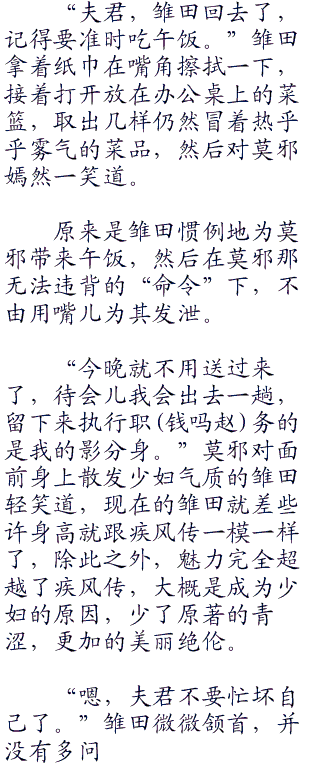 “夫君，雏田回去了，
记得要准时吃午饭。”雏田
拿着纸巾在嘴角擦拭一下，
接着打开放在办公桌上的菜
篮，取出几样仍然冒着热乎
乎雾气的菜品，然后对莫邪
嫣然一笑道。
原来是雏田惯例地为莫
邪带来午饭，然后在莫邪那
无法违背的“命令”下，不
由用嘴儿为其发泄。
“今晚就不用送过来
了，待会儿我会出去一趟，
留下来执行职(钱吗赵)务的
是我的影分身。”莫邪对面
前身上散发少妇气质的雏田
轻笑道，现在的雏田就差些
许身高就跟疾风传一模一样
了，除此之外，魅力完全超
越了疾风传，大概是成为少
妇的原因，少了原著的青
涩，更加的美丽绝伦。
“嗯，夫君不要忙坏自
己了。”雏田微微颔首，并
没有多问